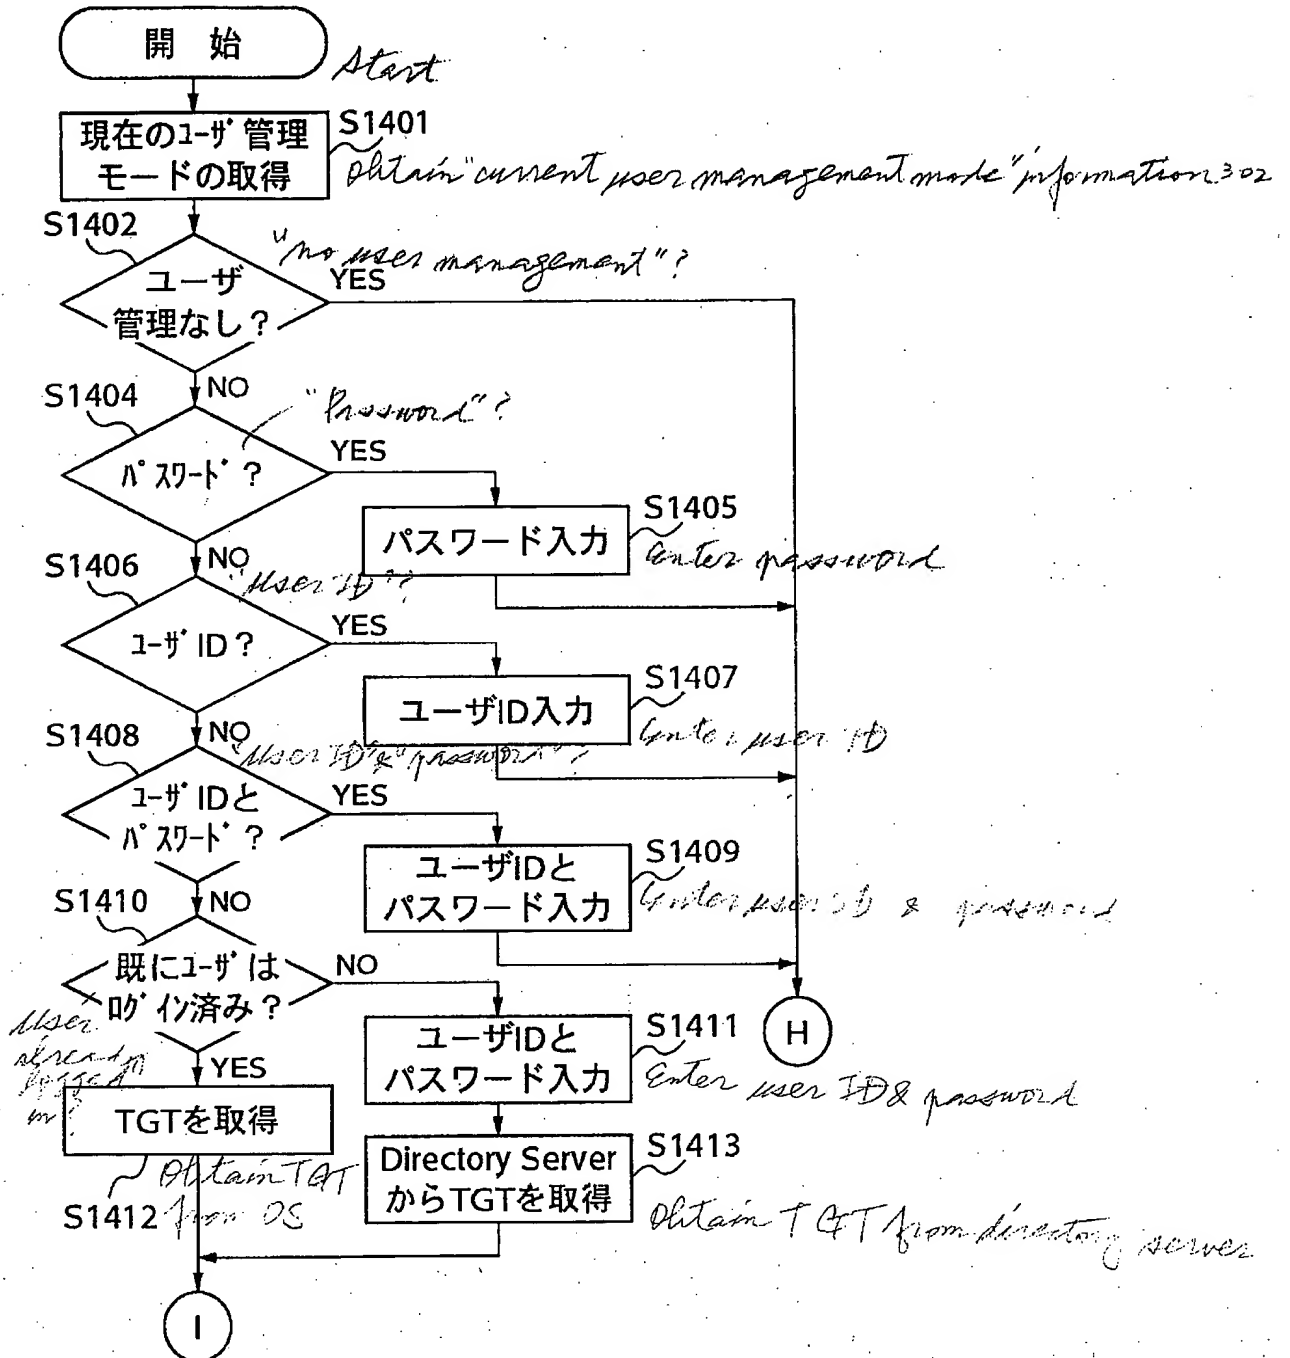 開 始
Start
現在のユーザ管理
モードの取得
S1401
Obtain "current user management mode" information 302
S1402
"no user management"?
ユーザ
管理なし?
YES
NO
S1404
"Password"?
パスワード?
YES
S1405
パスワード入力
Enter password
NO
S1406
"User ID"?
ユーザID?
YES
S1407
ユーザID入力
Enter user ID
NO
S1408
"User ID" & "password"?
ユーザIDと
パスワード?
YES
S1409
ユーザIDと
パスワード入力
Enter user ID & password
NO
S1410
既にユーザは
ログイン済み?
NO
User
already
logged
in?
YES
S1411
ユーザIDと
パスワード入力
Enter user ID & password
H
TGTを取得
S1412
Obtain TGT
from OS
S1413
Directory Server
からTGTを取得
Obtain TGT from directory server
I